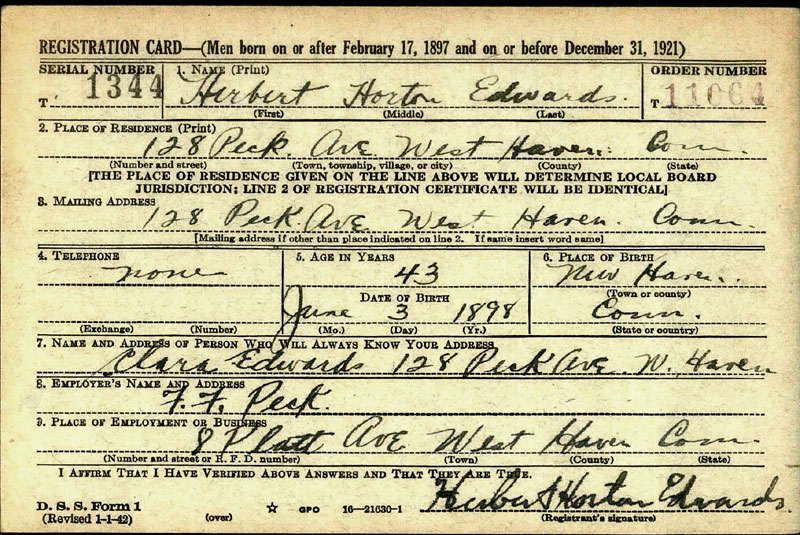 REGISTRATION CARD—(Men born on or after February 17, 1897 and on or before December 31, 1921)
SERIAL NUMBER 1. NAME (Print) ORDER NUMBER
T 1344 Herbert Horton Edwards. T 11064
(First) (Middle) (Last)
2. PLACE OF RESIDENCE (Print)
128 Peck. Ave West Haven. Conn.
(Number and street) (Town, township, village, or city) (County) (State)
[THE PLACE OF RESIDENCE GIVEN ON THE LINE ABOVE WILL DETERMINE LOCAL BOARD
JURISDICTION; LINE 2 OF REGISTRATION CERTIFICATE WILL BE IDENTICAL]
3. MAILING ADDRESS
128 Peck Ave West Haven. Conn.
[Mailing address if other than place indicated on line 2. If same insert word same]
4. TELEPHONE 5. AGE IN YEARS 6. PLACE OF BIRTH
none 43 New Haven.
DATE OF BIRTH (Town or county)
June 3 1898 Conn.
(Exchange) (Number) (Mo.) (Day) (Yr.) (State or country)
7. NAME AND ADDRESS OF PERSON WHO WILL ALWAYS KNOW YOUR ADDRESS
Clara Edwards 128 Peck Ave. W. Haven
8. EMPLOYER'S NAME AND ADDRESS
F. F. Peck.
9. PLACE OF EMPLOYMENT OR BUSINESS
8 Platt Ave West Haven Conn.
(Number and street or R. F. D. number) (Town) (County) (State)
I AFFIRM THAT I HAVE VERIFIED ABOVE ANSWERS AND THAT THEY ARE TRUE.
Herbert Horton Edwards
D. S. S. Form 1
(Revised 1-1-42) (over) ☆ GPO 16—21630-1 (Registrant's signature)